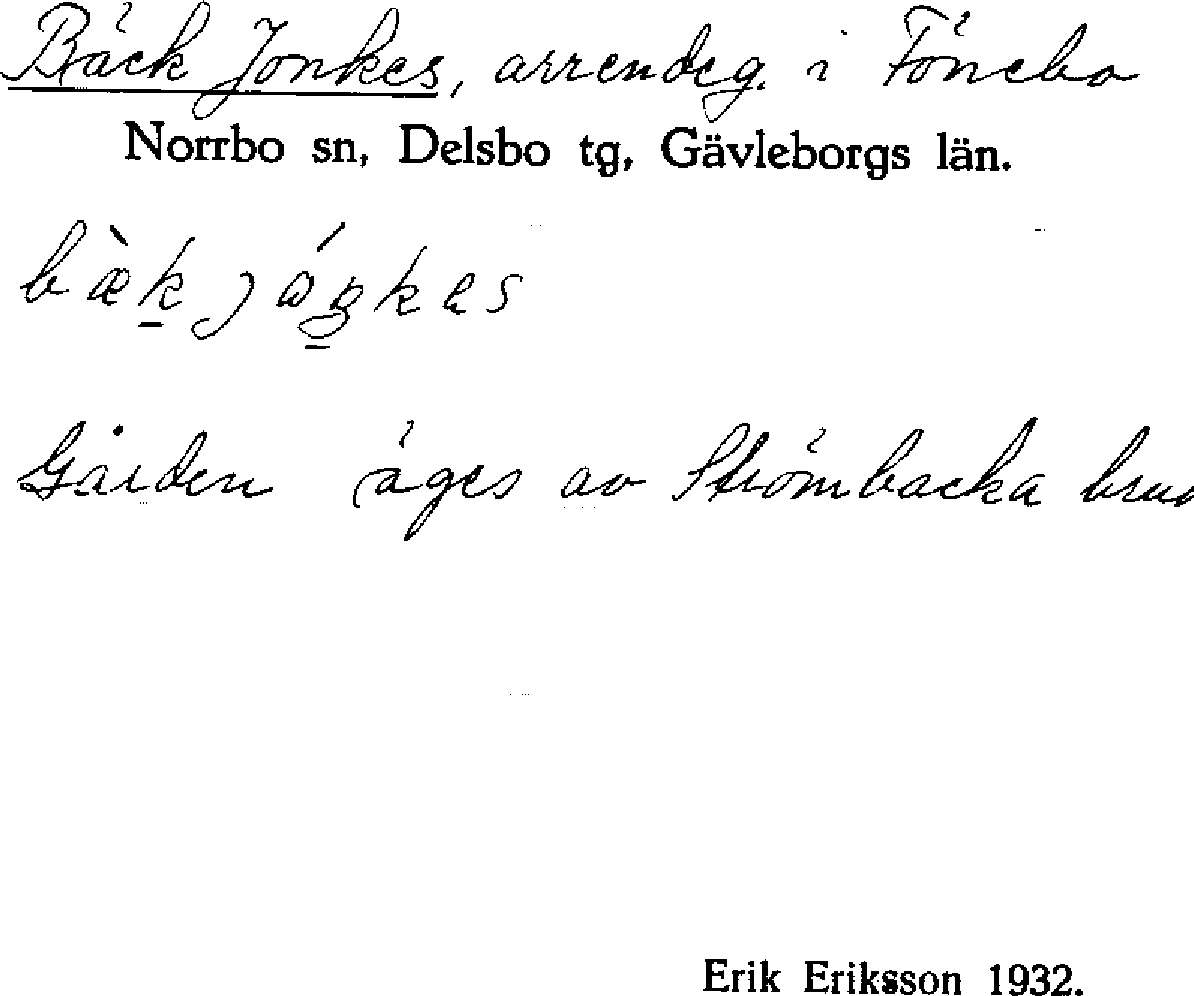 Bäck Jonkes, arrendeg. i Fönebo
Norrbo sn, Delsbo tg, Gävleborgs län.
Gården äges av Strömbacka bruk
Erik Eriksson 1932.